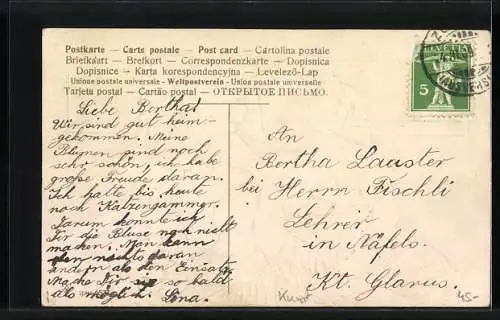 Postkarte – Carte postale – Post card – Cartolina postale
Briefkaart – Brefkort – Correspondenzkarte – Dopisnica
Dopisnice – Karta korespondencyjna – Levelező-Lap
Unione postale universale – Weltpostverein – Union postale universelle
Tarjeta postal – Cartão postal – ОТКРЫТОЕ ПИСЬМО.
HELVETIA
5
Liebe Bertha!
Wir sind gut heim-
gekommen. Meine
Blumen sind noch
sehr schön, ich habe
große Freude daran.
Ich hatte bis heute
noch Katzenjammer.
Darum konnte ich
Dir die Bluse noch nicht
machen. Man kann
den nachts daran
ändern als den Einsatz.
Mache Dir sie so bald
als möglich. Lina.
An
Bertha Lauster
bei Herrn Fischli
Lehrer
in Näfels.
Kt. Glarus.
45-